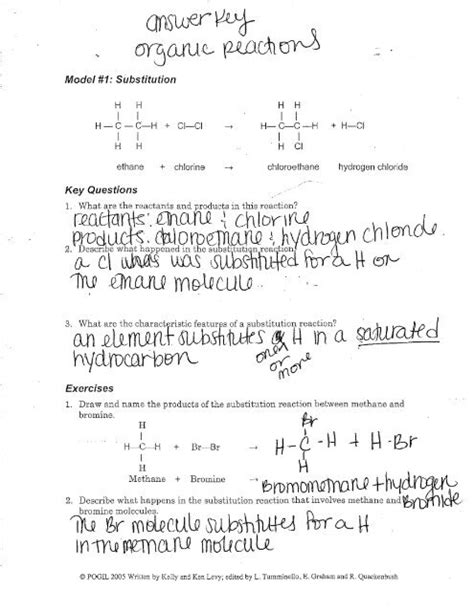 answer key
organic reactions
Model #1: Substitution
H H H H
H—C—C—H + Cl—Cl → H—C—C—H + H—Cl
H H H Cl
ethane + chlorine → chloroethane hydrogen chloride
Key Questions
1. What are the reactants and products in this reaction?
reactants: ethane & chlorine
products: chloroethane & hydrogen chloride.
2. Describe what happened in the substitution reaction.
a Cl was substituted for a H on
the ethane molecule.
3. What are the characteristic features of a substitution reaction?
an element substitutes a H in a saturated
hydrocarbon one or more
Exercises
1. Draw and name the products of the substitution reaction between methane and
bromine.
H Br
H—C—H + Br—Br → H-C-H + H-Br
H H
Methane + Bromine → Bromomethane + hydrogen
Bromide
2. Describe what happens in the substitution reaction that involves methane and
bromine molecules.
The Br molecule substitutes for a H
in the methane molecule
© POGIL 2005 Written by Kelly and Ken Levy; edited by L. Tumminello, E. Graham and R. Quackenbush